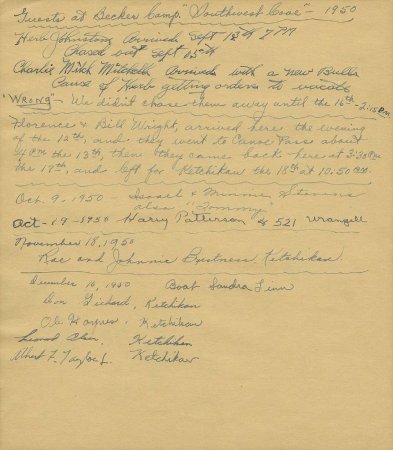 Guests at Becker Camp "Southwest Cove" - 1950
Herb Johnston Arrived Sept 13th 7 PM
Chased out Sept 15th
Charlie Mitch Mitchell Arrived with a new Bulls
Cause of Herb getting orders to vacate
"WRONG" - We didn't chase them away until the 16th - 2:15 PM
Florence & Bill Wright, arrived here the evening
of the 12th, and they went to Canoe Pass about
4 PM the 13th, then they came back here at 3:30 PM
the 17th, and left for Ketchikan the 18th at 10:50 AM.
Oct. 9. 1950 - Israel & Minnie Stevens
also "Tommy"
Oct - 19 - 1950 Harry Patterson & 521 Wrangell
November 18, 1950
Rae and Johnnie Bustness, Ketchikan.
December 10, 1950 Boat Sandra Lynn
Don Pichard, Ketchikan
Ole Haynes, Ketchikan
Ketchikan
Albert F. Taylor Ketchikan